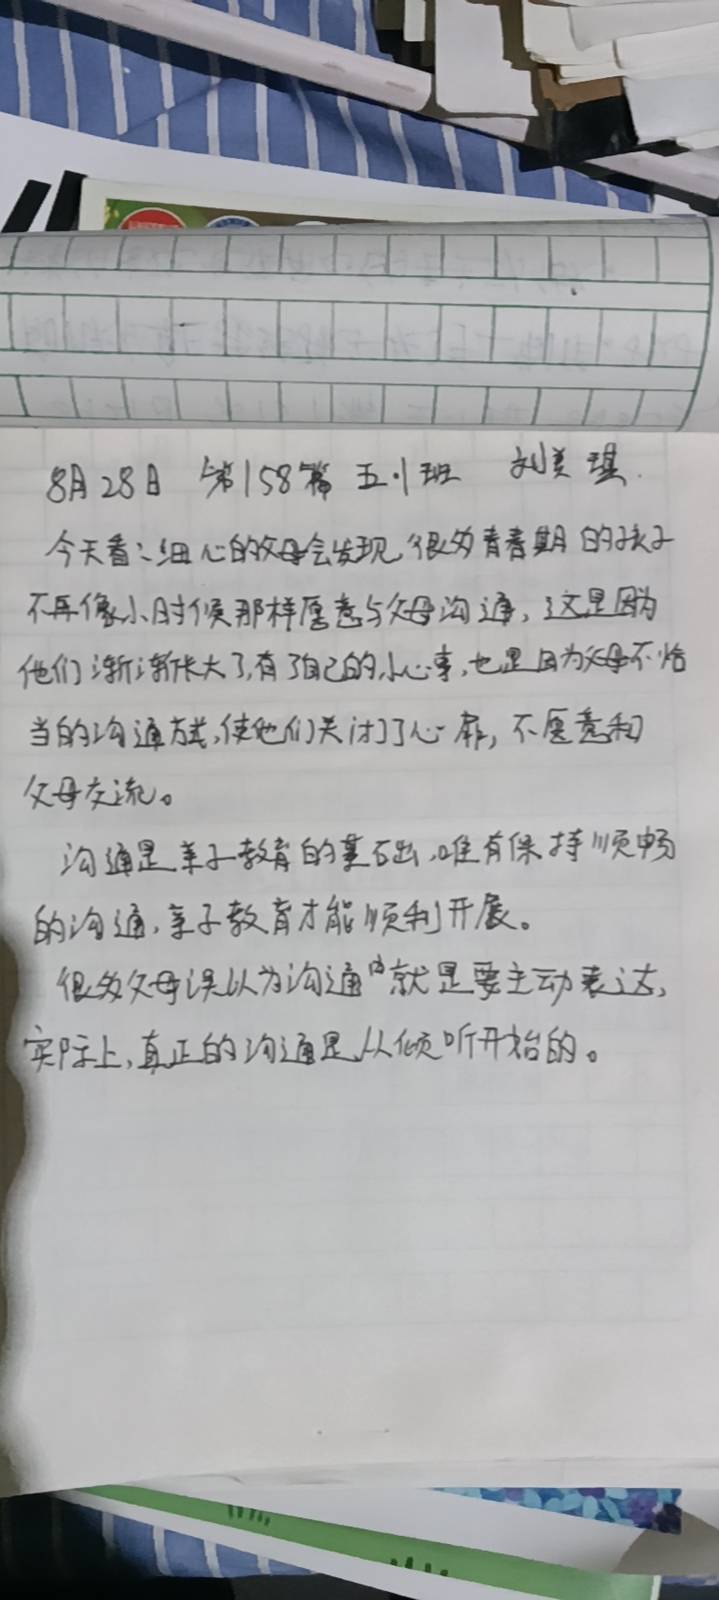 8月28日 第158篇 五.1班 刘美琪.
今天看:细心的父母会发现,很多青春期的孩子
不再像小时候那样愿意与父母沟通,这是因为
他们渐渐张大了,有了自己的小心事,也是因为父母不恰
当的沟通方式,使他们关闭了心扉,不愿意和
父母交流。
沟通是亲子教育的基础,唯有保持顺畅
的沟通,亲子教育才能顺利开展。
很多父母误以为沟通中就是要主动表达,
实际上,真正的沟通是从倾听开始的。